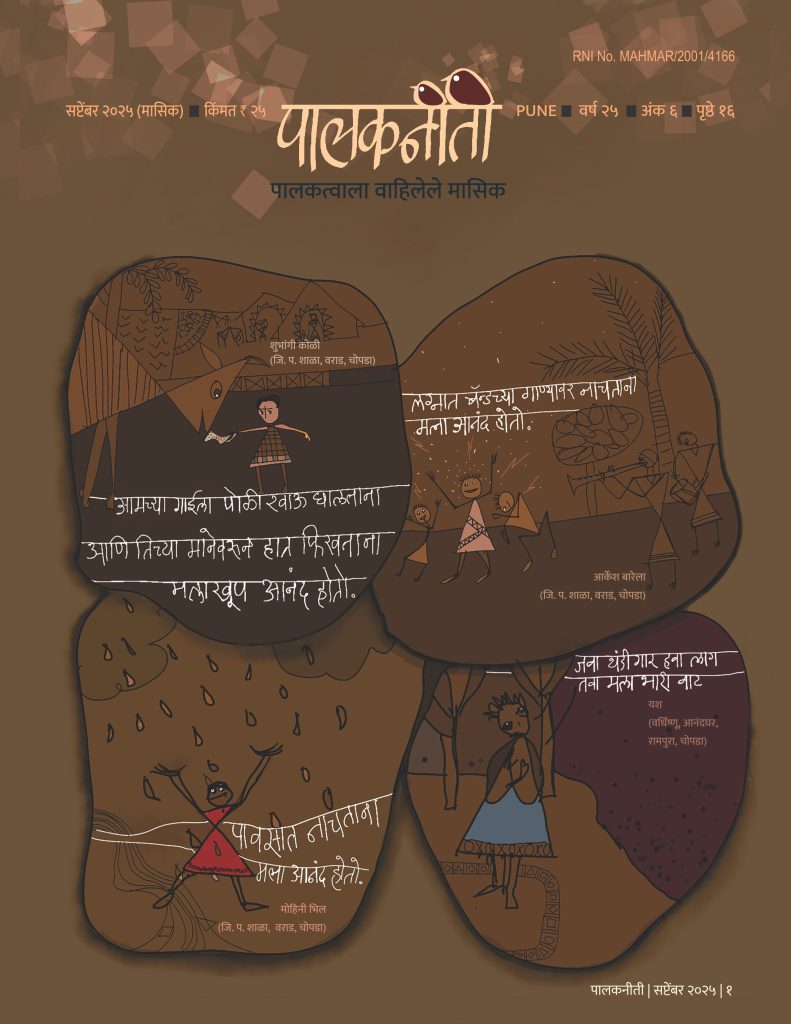 RNI No. MAHMAR/2001/4166
सप्टेंबर २०२५ (मासिक) ■ किंमत ₹ २५
पालकनीती
PUNE ■ वर्ष २५ ■ अंक ६ ■ पृष्ठे १६
पालकत्वाला वाहिलेले मासिक
शुभांगी कोळी
(जि. प. शाळा, वराड, चोपडा)
आमच्या गाईला पोळी खाऊ घालताना
आणि तिच्या मानेवरून हात फिरवताना
मला खूप आनंद होतो.
लग्नात बॅन्डच्या गाण्यावर नाचताना
मला आनंद होतो.
आर्केश बारेला
(जि. प. शाळा, वराड, चोपडा)
पावसात नाचताना
मला आनंद होतो.
मोहिनी भिल
(जि. प. शाळा, वराड, चोपडा)
जवा थंडीगार हवा लाग
तवा मला भारी वाट
यश
(वर्धिष्णू, आनंदघर,
रामपुरा, चोपडा)
पालकनीती | सप्टेंबर २०२५ | १